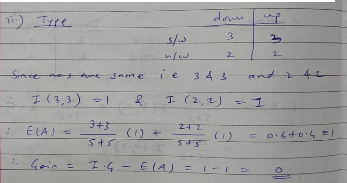 iii) Type
down up
s/w 3 3
n/w 2 2
Since nos are same i.e 3 & 3 and 2 & 2
∴ I (3,3) = 1 & I (2,2) = 1
∴ E(A) = 3+3/5+5 (1) + 2+2/5+5 (1) = 0.6+0.4 = 1
∴ Gain = I.G - E(A) = 1-1 = 0